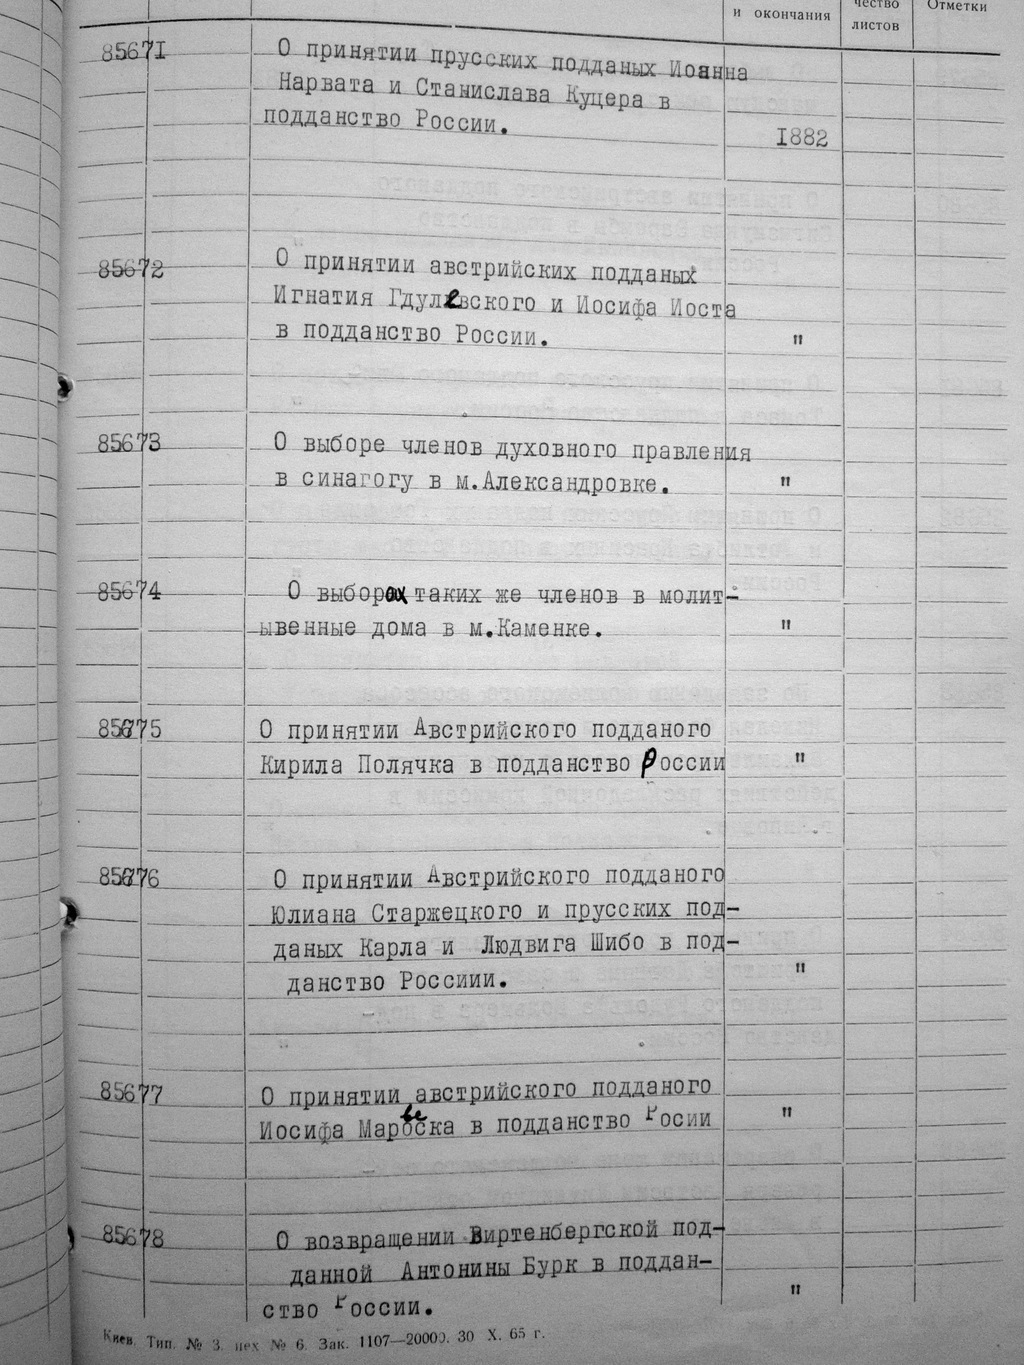 и окончания
чество
листов
Отметки
85671 О принятии прусских подданых Иоанна
Нарвата и Станислава Куцера в
подданство России.
1882
85672 О принятии австрийских подданых
Игнатия Гдулевского и Иосифа Иоста
в подданство России. "
85673 О выборе членов духовного правления
в синагогу в м.Александровке. "
85674 О выборах таких же членов в молит-
ывенные дома в м.Каменке. "
85675 О принятии Австрийского подданого
Кирила Полячка в подданство России "
85676 О принятии Австрийского подданого
Юлиана Старжецкого и прусских под-
даных Карла и Людвига Шибо в под-
данство Россиии. "
85677 О принятии австрийского подданого
Иосифа в подданство Росии "
85678 О возвращении Виртенбергской под-
данной Антонины Бурк в поддан-
ство России. "
Киев. Тип. № 3. цех № 6. Зак. 1107—20000. 30 X. 65 г.